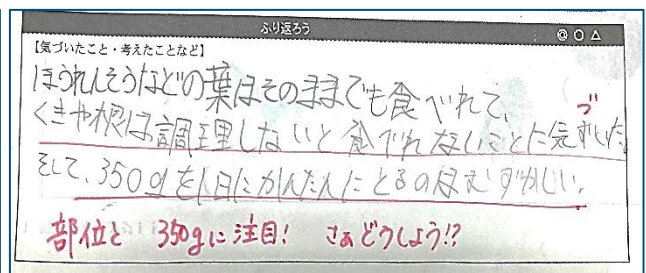 ふり返ろう
◎ ○ △
【気づいたこと・考えたことなど】
ほうれんそうなどの葉はそのままでも食べれて、
くきや根は調理しないと食べれないことに気ずいた。
づ
そして、350gを1日にかんたんにとるのはむずかしい。
部位と 350gに注目! さぁどうしよう!?